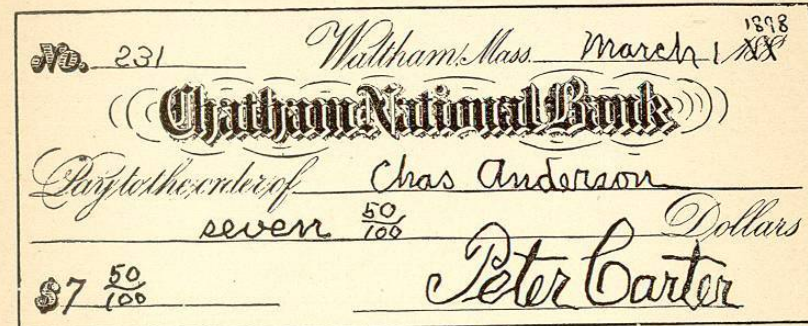 1898
No. 231 Waltham, Mass. March 1 188
Chatham National Bank
Pay to the order of Chas Anderson
seven 50/100 Dollars
$7 50/100 Peter Carter